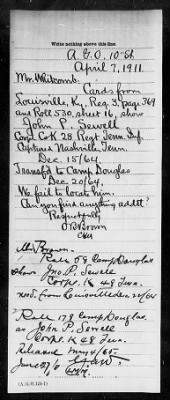 Write nothing above this line.
A.G.O. 10-St
April 7, 1911.
Mr. Whitcomb.
Cards from
Louisville, Ky., Reg. 3, page 369
and Roll 530, sheet 16, show
John P. Sewell
Corpl Co K 28 Regt Tenn. Inf.
Captured Nashville Tenn.
Dec. 15/64.
Transfd to Camp Douglas
Dec. 20/64.
We fail to locate him.
Can you find anything addtl?
Respectfully
Brown
Mr. Brown.
Roll 58 Camp Douglas
show Jno. P. Sewell
Corpl. K 48 Ten.
recd. from Louisville Dec. 22/64
Roll 178 Camp Douglas.
as John P. Sewell
Corpl. K 28 Ten.
Released
June
(A.G.O. 121-1)